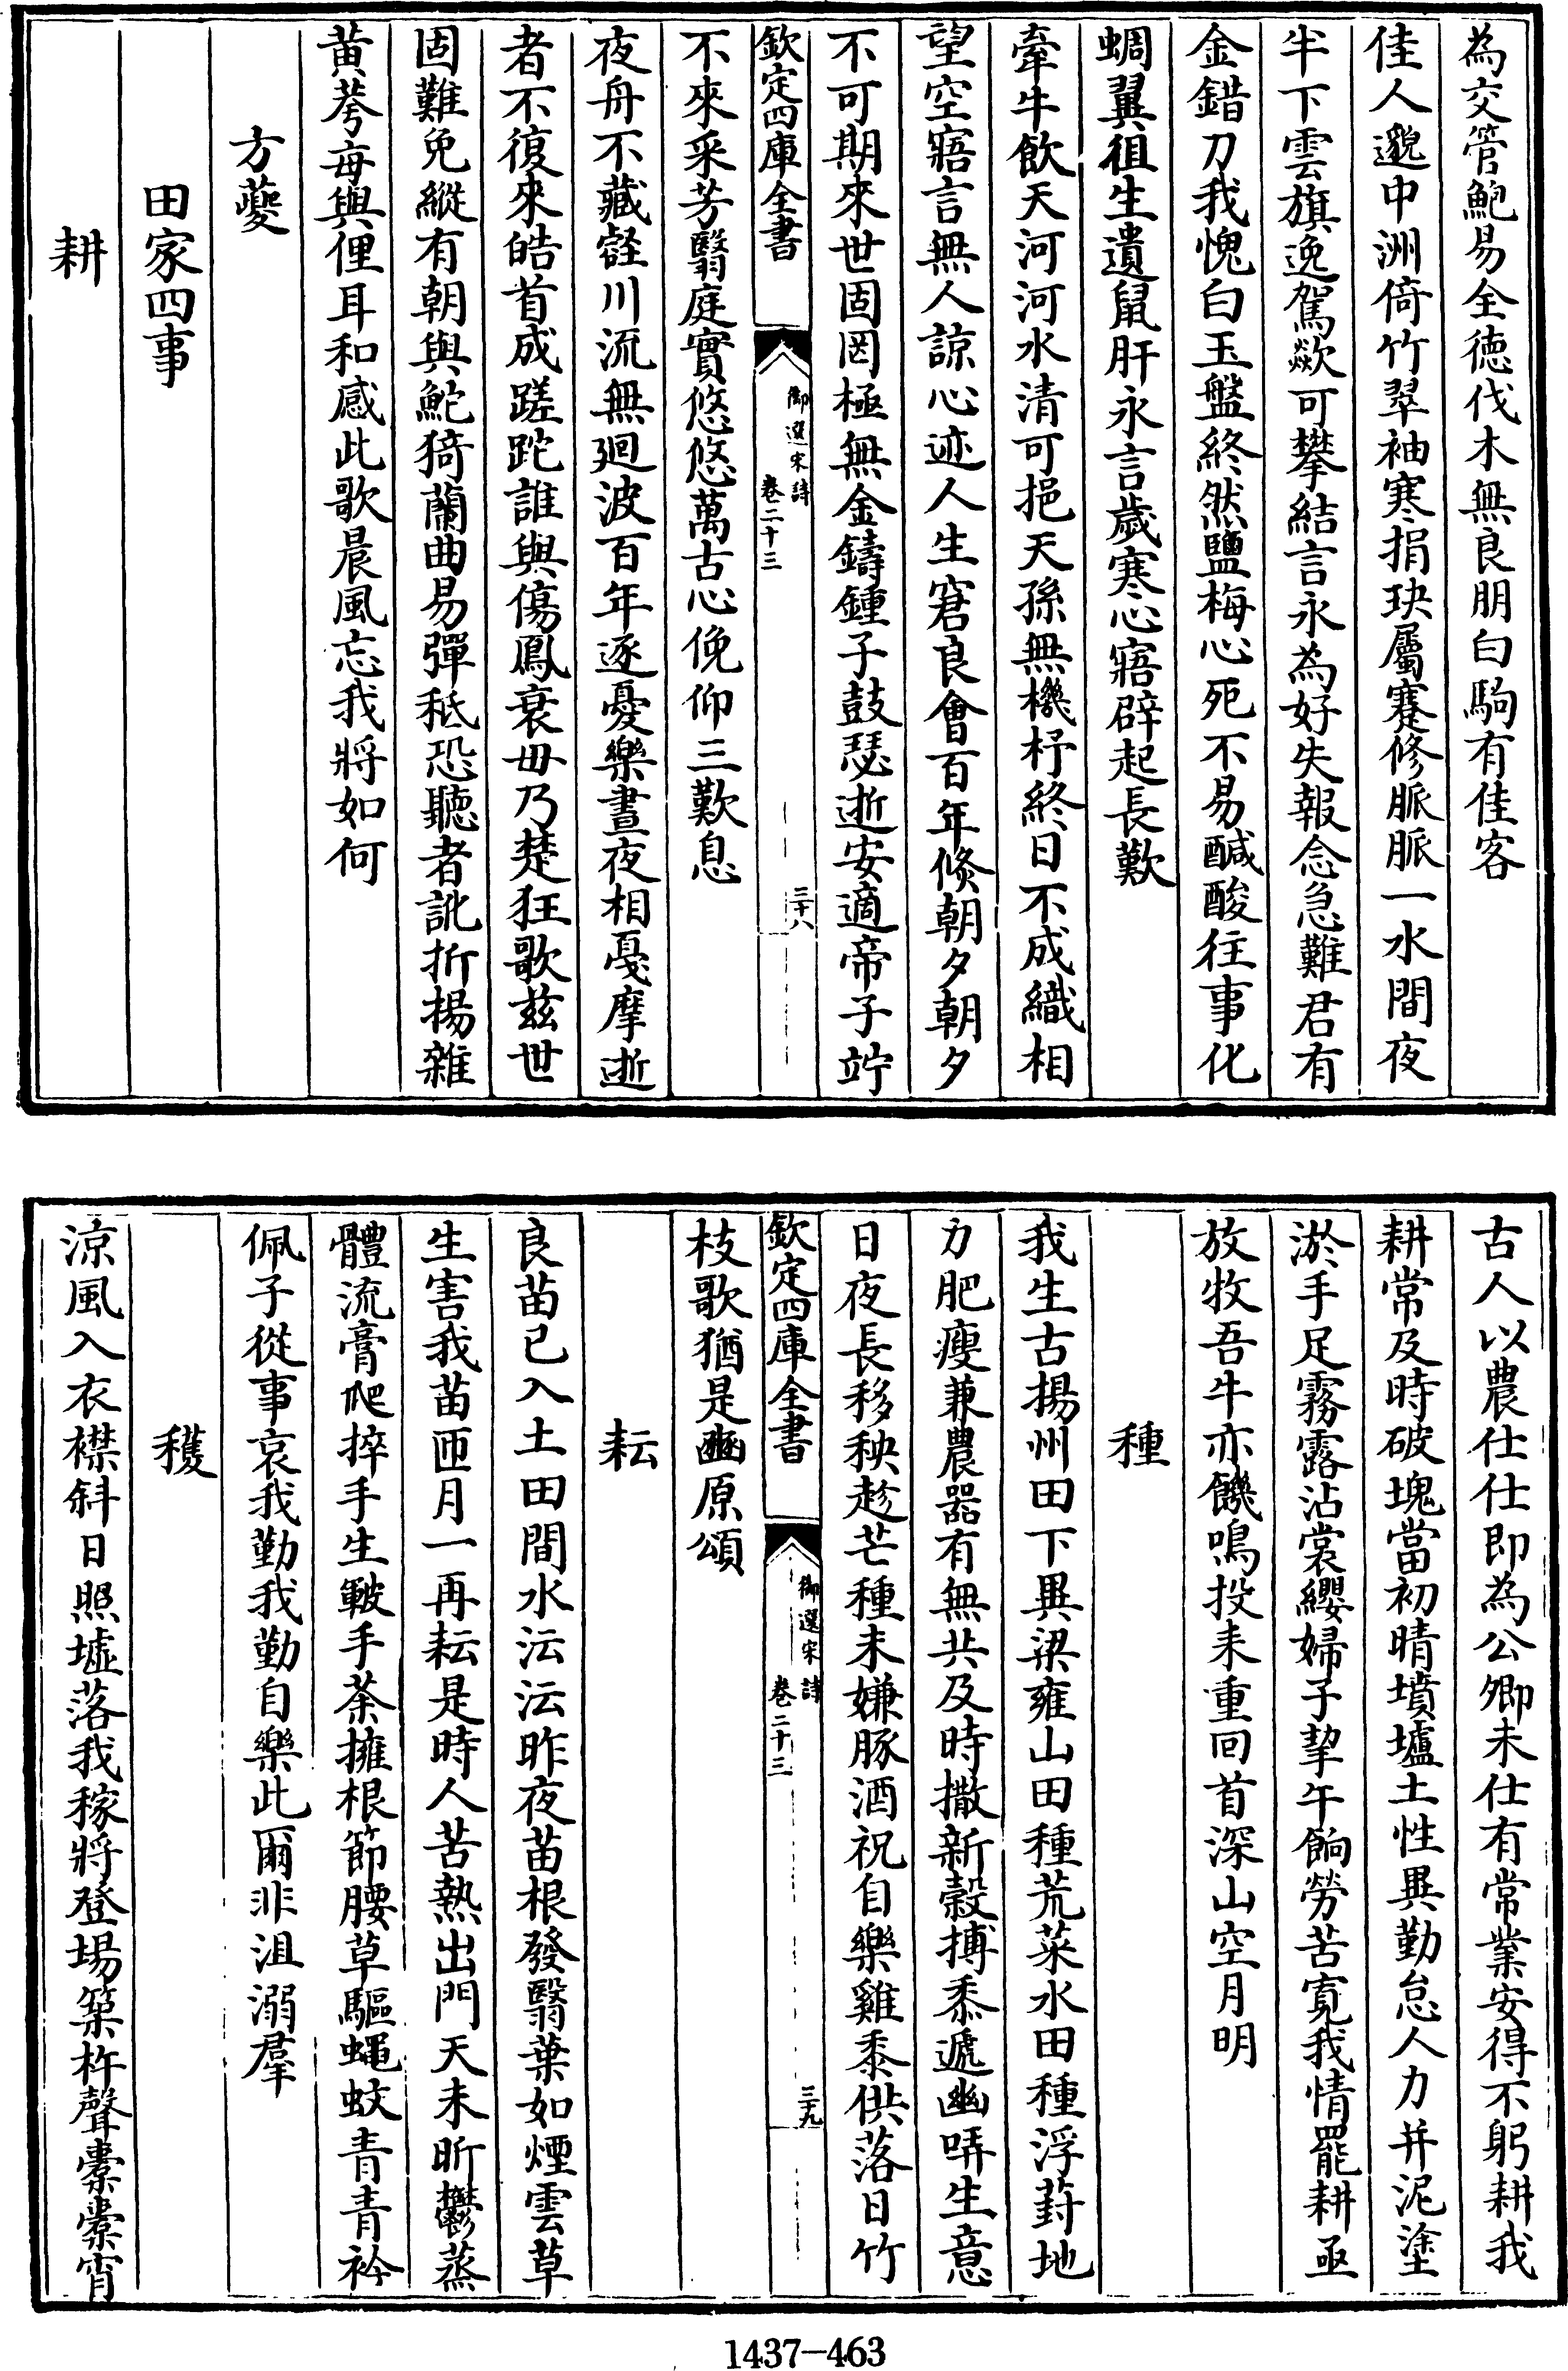 為交管鮑易全徳伐木無良朋白駒有佳客
佳人邈中洲倚竹翠袖寒捐玦屬蹇修脈脈一水間夜
半下雲旗逸駕歘可攀結言永為好失報念急難君有
金錯刀我愧白玉盤終然鹽梅心死不易醎酸往事化
蜩翼徂生遺鼠肝永言歲寒心寤辟起長歎
牽牛飲天河河水清可挹天孫無機杼終日不成織相
望空寤言無人諒心迹人生窘良會百年倐朝夕朝夕
不可期來世固罔極無金鑄鍾子鼓瑟逝安適帝子竚
欽定四庫全書
御選宋詩
卷二十三
三十八
不來采芳翳庭實悠悠萬古心俛仰三歎息
夜舟不藏壑川流無廻波百年逐憂樂晝夜相戛摩逝
者不復來皓首成蹉跎誰與傷鳳衰毋乃楚狂歌兹世
固難免縱有朝與鮀猗蘭曲易彈秪恐聽者訛折揚雜
黄荂每與俚耳和感此歌晨風忘我將如何
方夔
田家四事
耕
古人以農仕仕即為公卿未仕有常業安得不躬耕我
耕常及時破塊當初晴墳壚土性異勤怠人力并泥塗
淤手足霧露沾裳纓婦子挈午餉勞苦寛我情罷耕亟
放牧吾牛亦饑鳴投耒重回首深山空月明
種
我生古揚州田下異梁雍山田種荒萊水田種浮葑地
力肥瘦兼農器有無共及時撒新穀摶黍遞幽哢生意
日夜長移秧趁芒種未嫌豚酒祝自樂雞黍供落日竹
欽定四庫全書
御選宋詩
卷二十三
三十九
枝歌猶是豳原頌
耘
良苗已入土田間水沄沄昨夜苗根發翳葉如煙雲草
生害我苗匝月一再耘是時人苦熱出門天未昕鬱蒸
體流膏爬捽手生皸手荼擁根節腰草驅蠅蚊青青衿
佩子從事哀我勤我勤自樂此爾非沮溺羣
穫
涼風入衣襟斜日照墟落我稼將登場築杵聲橐橐宵
1437—463